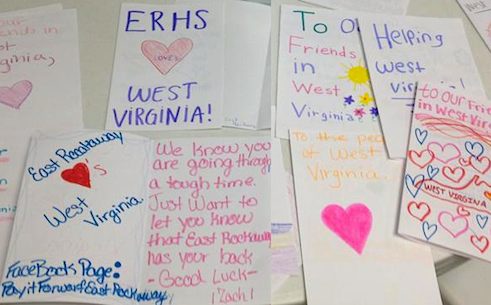 Our
Friends in
West
Virginia,
ERHS
LOVES
WEST
VIRGINIA!
To Our
Friends
in
West
Virginia!
Helping
West
Virginia!
to our Friends
in West Virginia
WEST VIRGINIA
To the people
of West
Virginia.
East Rockaway
's
West Virginia
FaceBook Page:
Pay it Forward East Rockaway
We know you
are going through
a tough time.
Just Want to
let you know
that East Rockaway
has your back
- Good Luck -
! Zach!